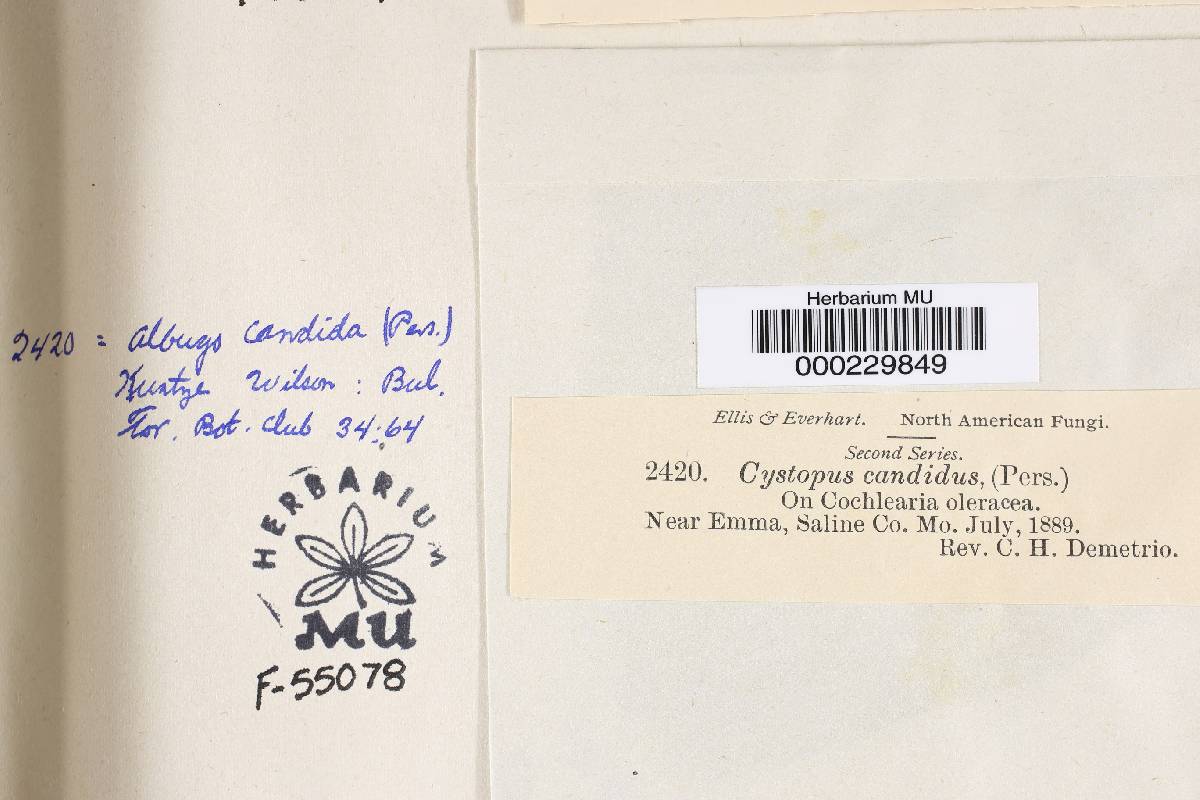 2420 = Albugo candida (Pers.)
Kuntze Wilson : Bul.
Tor. Bot. Club 34:64
HERBARIUM
MU
F-55078
Herbarium MU
000229849
Ellis & Everhart. North American Fungi.
Second Series.
2420. Cystopus candidus, (Pers.)
On Cochlearia oleracea.
Near Emma, Saline Co. Mo. July, 1889.
Rev. C. H. Demetrio.